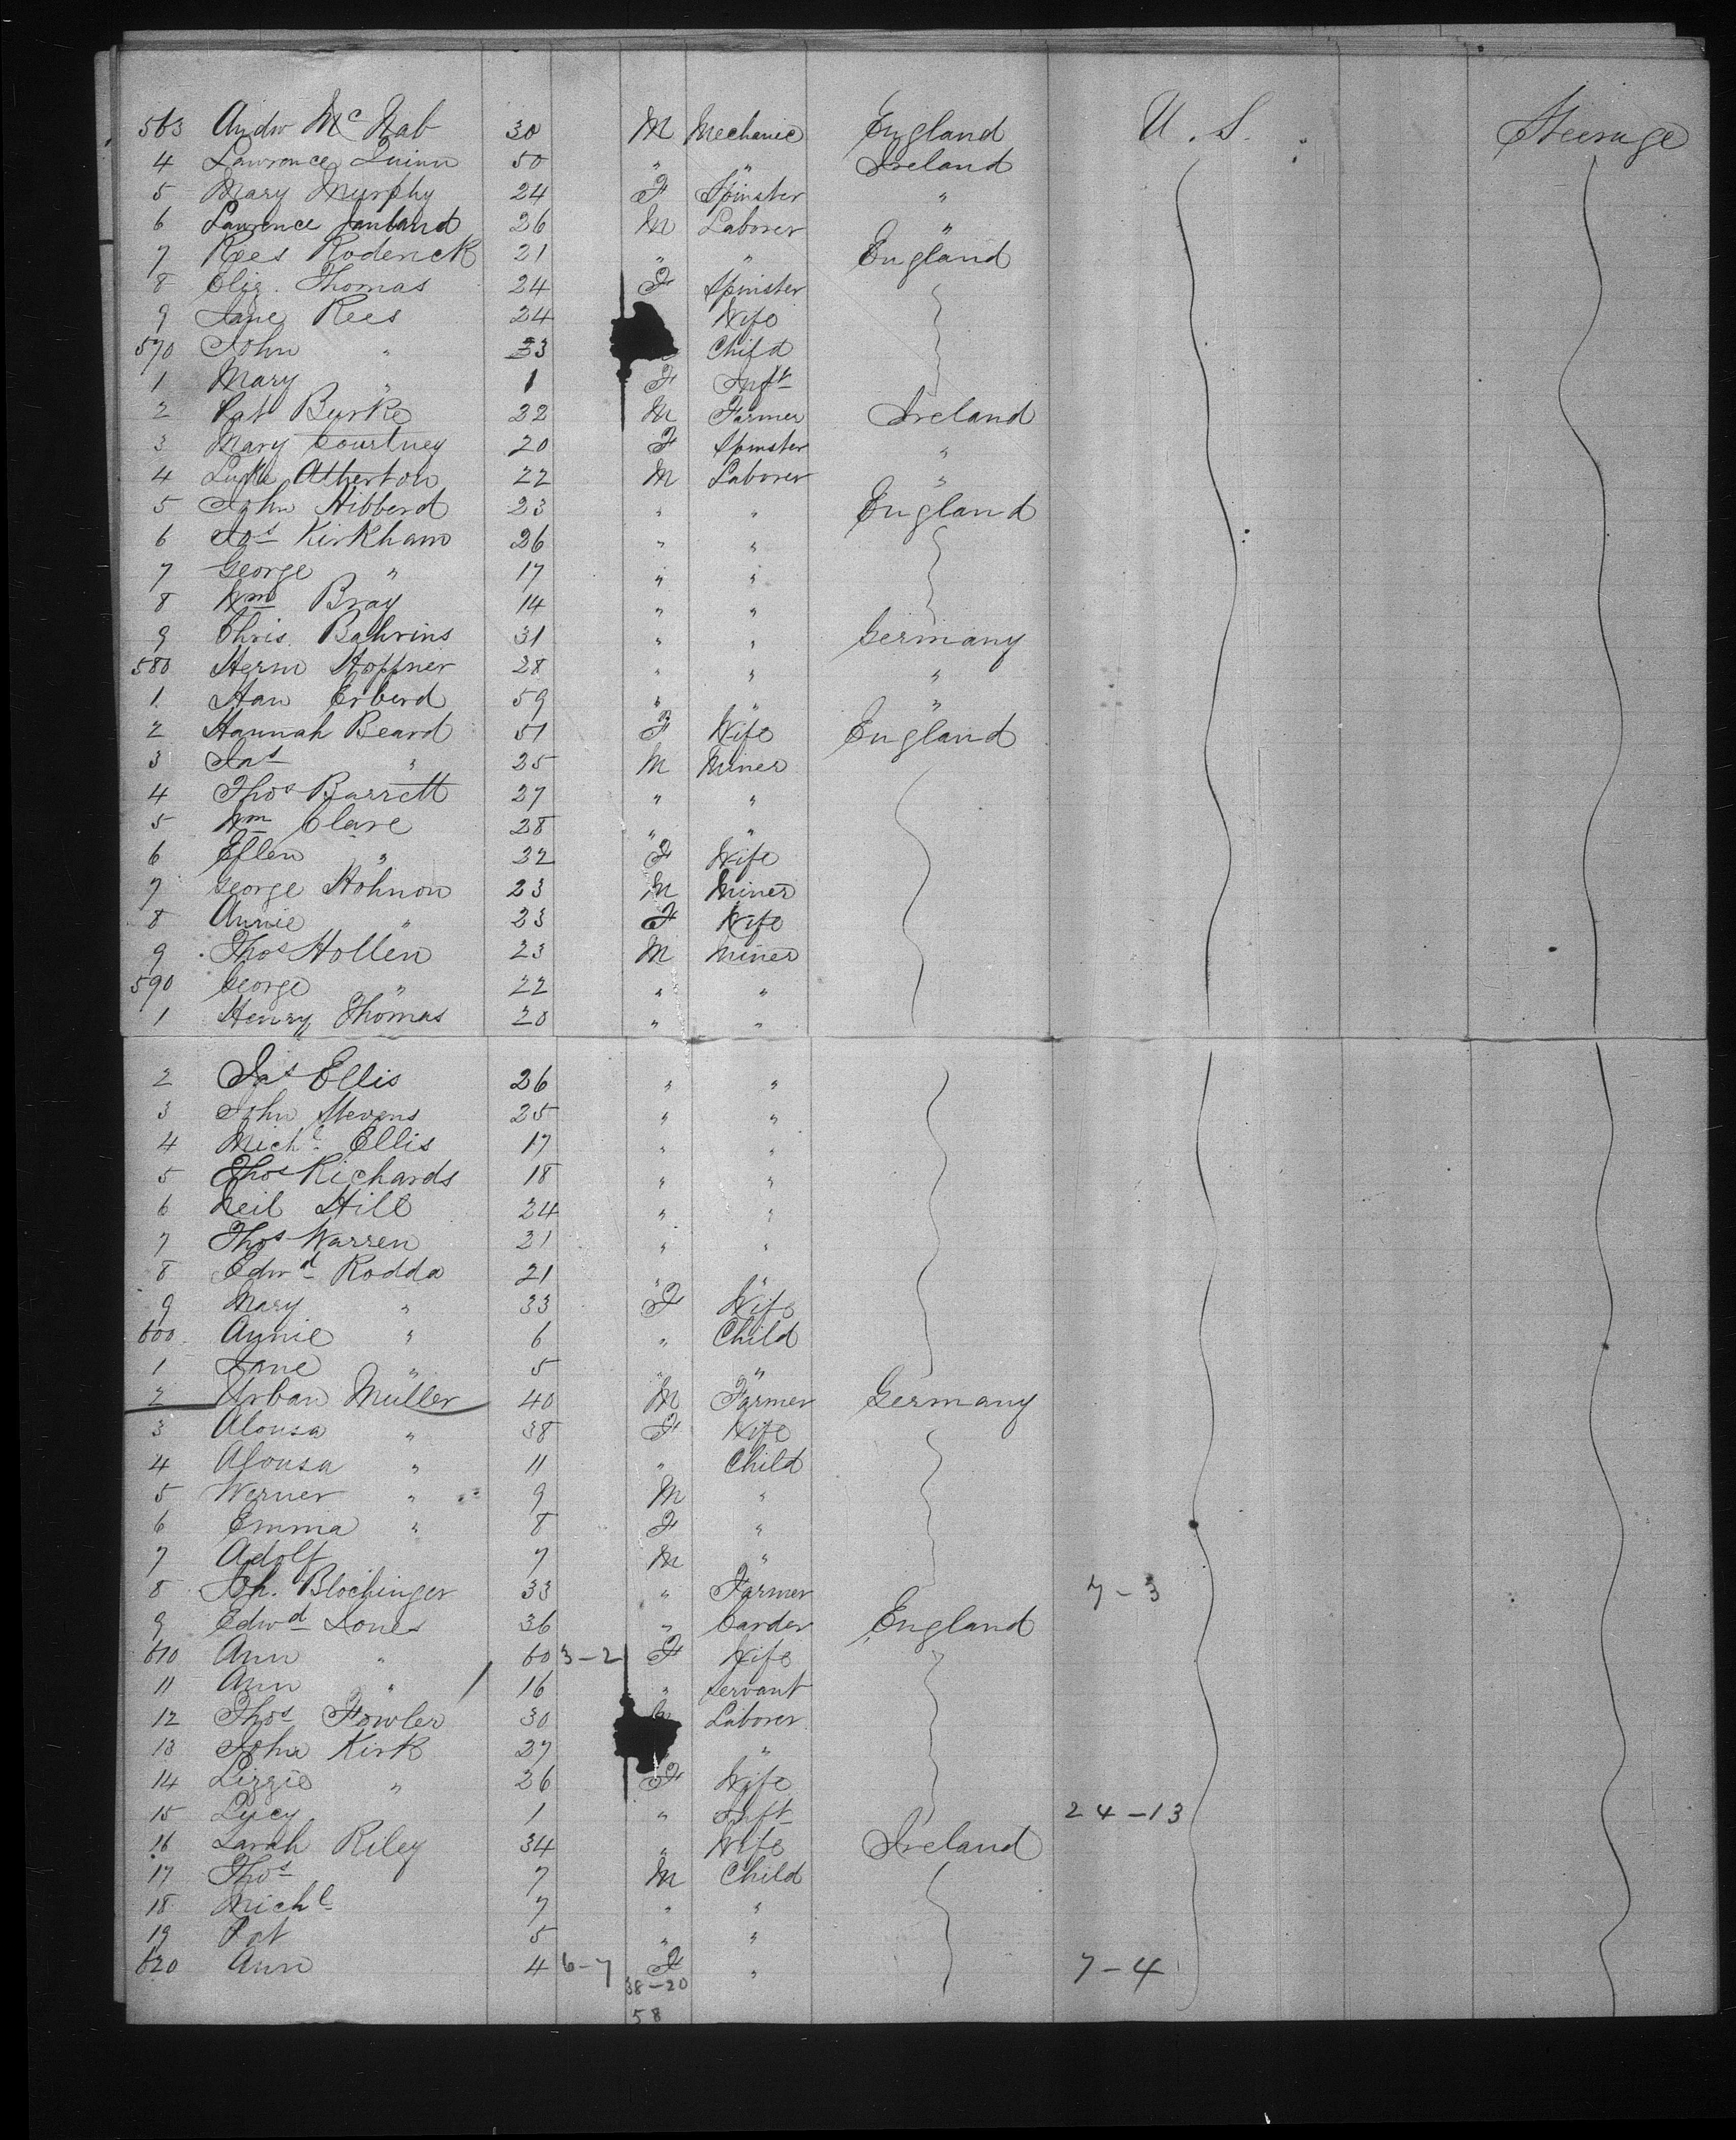 563 Andw McNab 30 M Mechanic England U.S. Steerage
4 Lawrence Quinn 50 " " Ireland
5 Mary Murphy 24 F Spinster "
6 Lawrence 26 M Laborer "
7 Rees Roderick 21 " " England
8 Eliz. Thomas 24 F Spinster
9 Jane Rees 24 Wife
570 John " 33 Child
1 Mary " 1 F Inft
2 Pat Burke 22 M Farmer Ireland
3 Mary Courtney 20 F Spinster "
4 Luke Atherton 22 M Laborer "
5 John Hibberd 23 " " England
6 Jos Kirkham 26 " "
7 George " 17 " "
8 Wm Bray 14 " "
9 Chris. Bahrins 31 " " Germany
580 Herm Hoffner 28 " " "
1 Han Erberd 59 " " "
2 Hannah Beard 51 F Wife England
3 Jas " 25 M Miner
4 Thos Barrett 27 " "
5 Wm Clare 28 " "
6 Ellen " 32 F Wife
7 George Hohnon 23 M Miner
8 Annie " 23 F Wife
9 Thos Hollen 23 M Miner
590 George " 22 " "
1 Henry Thomas 20 " "
2 Jas Ellis 26 " "
3 John Stevens 25 " "
4 Michl Ellis 17 " "
5 Thos Richards 18 " "
6 Neil Hill 24 " "
7 Thos Warren 21 " "
8 Edwd Rodda 21 " "
9 Mary " 33 F Wife
600 Annie " 6 " Child
1 Jane " 5 " "
2 Urban Muller 40 M Farmer Germany
3 Alousa " 38 F Wife
4 Alousa " 11 " Child
5 Werner " 9 M "
6 Emma " 8 F "
7 Adolf 7 M "
8 Joh. Blochinger 33 " Farmer 7-3
9 Edwd Jones 36 " Carder England
610 Ann " 60 3-2 F Wife
11 Ann " 16 " Servant
12 Thos Fowler 30 M Laborer
13 John Kirk 27 "
14 Lizzie " 26 F Wife
15 Lucy 1 " Inft 24-13
16 Sarah Riley 34 " Wife Ireland
17 Thos 7 M Child
18 Michl 7 " "
19 Pat 5 " "
620 Ann 4 6-7 F " 7-4
38-20
58